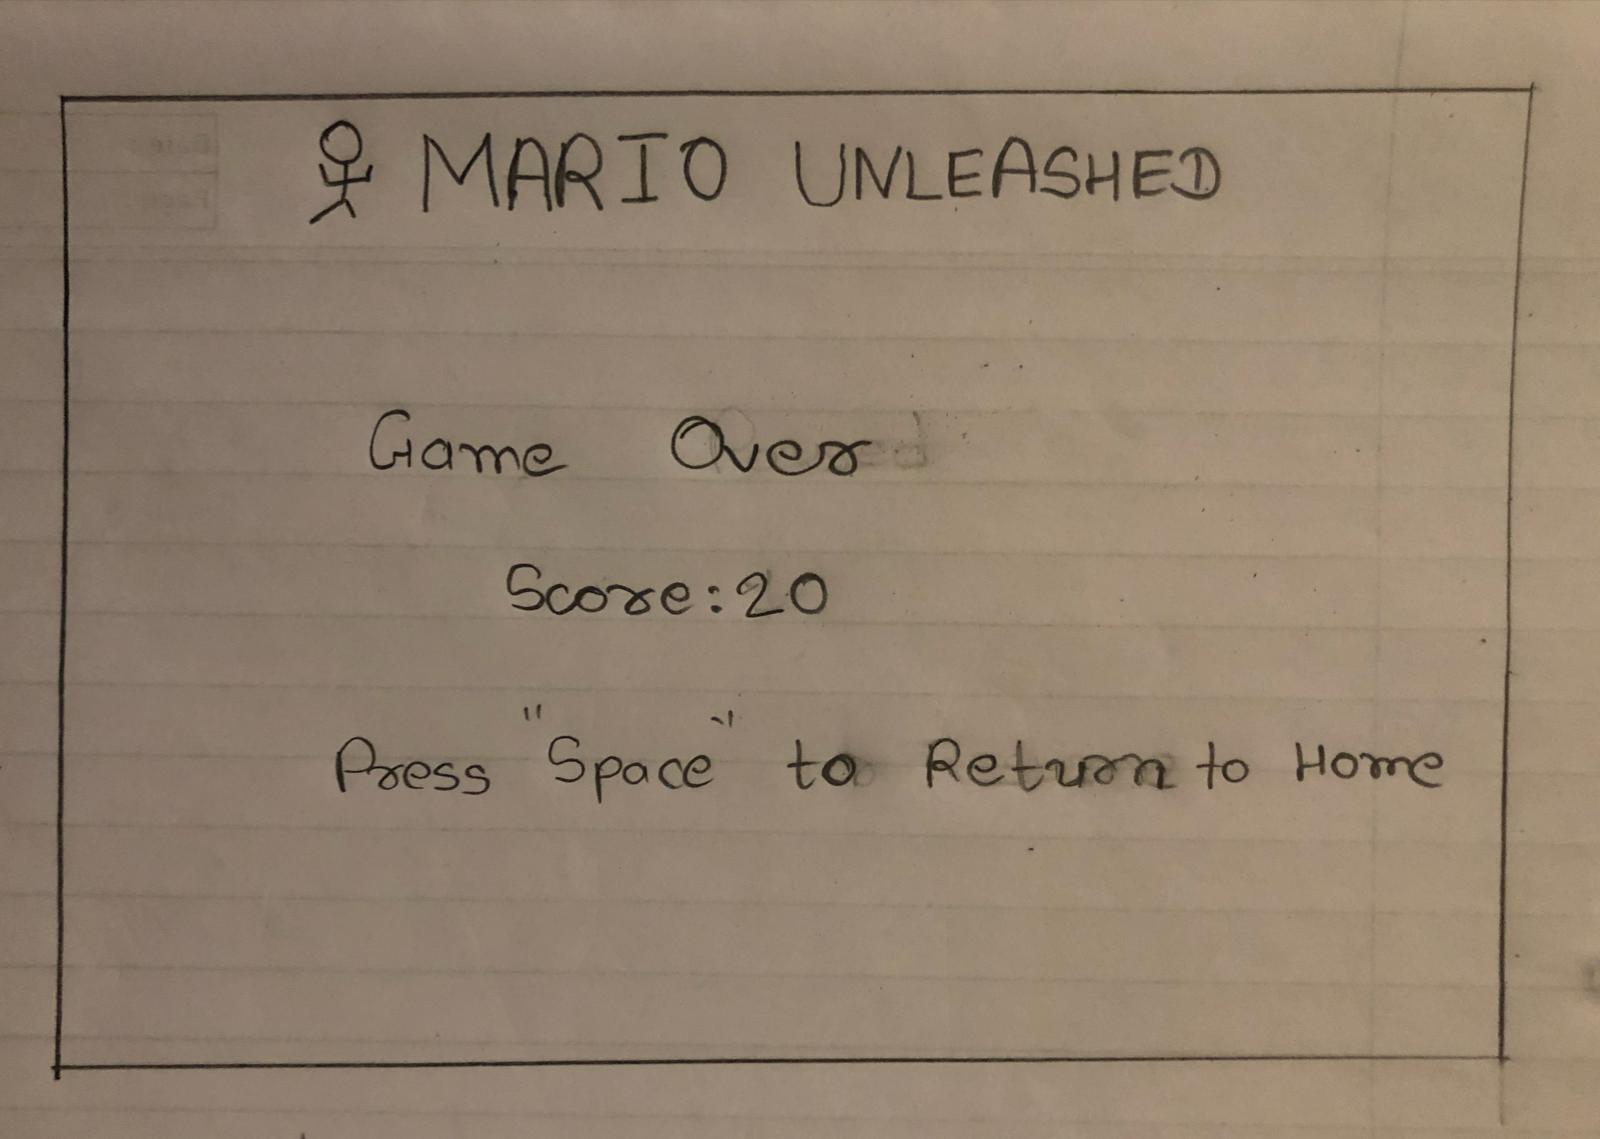 MARIO UNLEASHED
Game Over
Score:20
Press "Space" to Return to Home